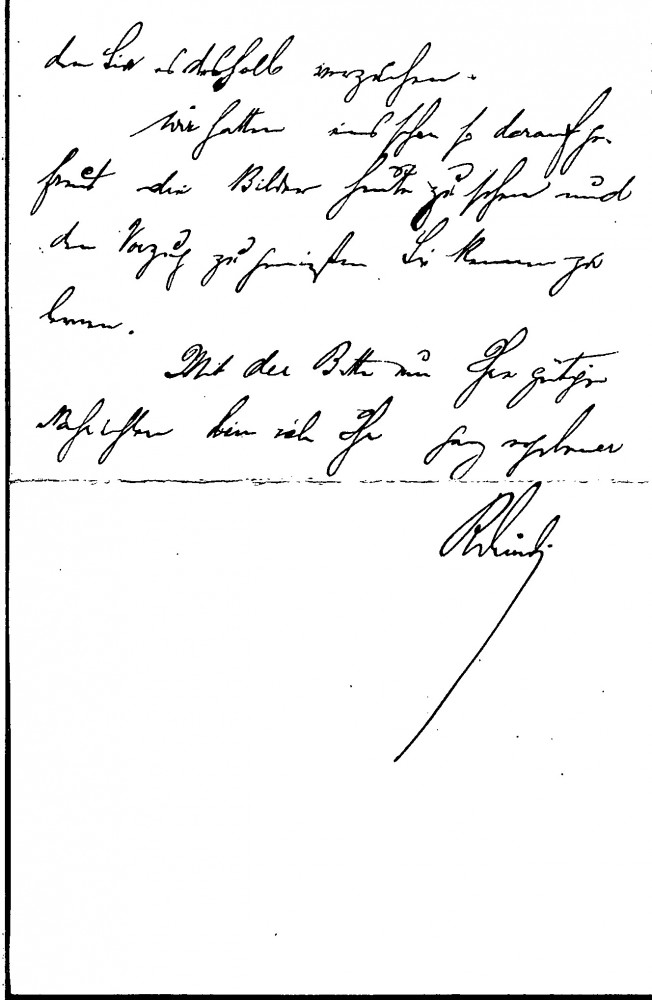 den Sie es deshalb verzeihen.
Wir hatten uns schon so darauf ge-
freut die Bilder heute zu sehen und
den Vorzug zu genießen Sie kennen zu
lernen.
Mit der Bitte um Ihre gütigen
Nachrichten bin ich Ihr ganz ergebener